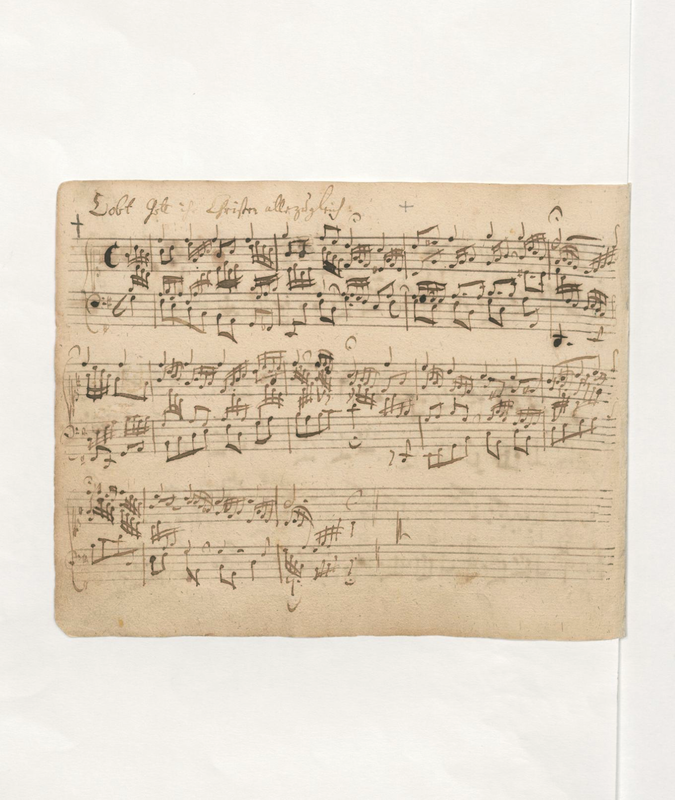 Lobt Gott ihr Christen allezugleich